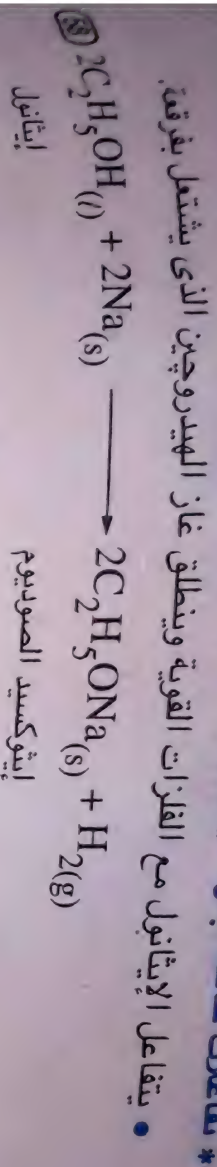 • يتفاعل الإيثانول مع الفلزات القوية وينطلق غاز الهيدروچين الذى يشتعل بفرقعة.
2C₂H₅OH(l) + 2Na(s) ⟶ 2C₂H₅ONa(s) + H₂(g)
إيثانول إيثوكسيد الصوديوم